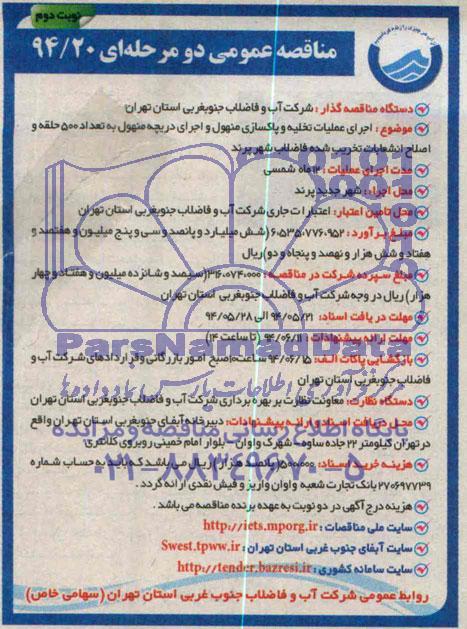 نوبت دوم
مناقصه عمومی دو مرحله‌ای ۹۴/۲۰
دستگاه مناقصه گذار : شرکت آب و فاضلاب جنوبغربی استان تهران
موضوع : اجرای عملیات تخلیه و پاکسازی منهول و اجرای دریچه منهول به تعداد ۵۰۰ حلقه و
اصلاح انشعابات تخریب شده فاضلاب شهر پرند
مدت اجرای عملیات : ۱۲ ماه شمسی
محل اجراء : شهر جدید پرند
محل تامین اعتبار : اعتبارات جاری شرکت آب و فاضلاب جنوبغربی استان تهران
مبلغ برآورد : ۶،۵۳۵،۷۷۶،۹۵۲ (شش میلیارد و پانصد و سی و پنج میلیون و هفتصد و
هفتاد و شش هزار و نهصد و پنجاه و دو) ریال
مبلغ سپرده شرکت در مناقصه : ۳۱۶،۰۷۴،۰۰۰ (سیصد و شانزده میلیون و هفتاد و چهار
هزار) ریال در وجه شرکت آب و فاضلاب جنوبغربی استان تهران
مهلت دریافت اسناد : ۹۴/۰۵/۲۱ الی ۹۴/۰۵/۲۸
مهلت ارائه پیشنهادات : ۹۴/۰۶/۱۱ (تا ساعت ۱۴)
بازگشایی پاکات الف : ۹۴/۰۶/۱۵ ساعت ۱۰ صبح امور بازرگانی و قراردادهای شرکت آب و
فاضلاب جنوبغربی استان تهران
دستگاه نظارت : معاونت نظارت بر بهره برداری شرکت آب و فاضلاب جنوبغربی استان تهران
محل دریافت اسناد و ارائه پیشنهادات : دبیرخانه آبفای جنوبغربی استان تهران واقع
در تهران کیلومتر ۲۲ جاده ساوه - شهرک واوان - بلوار امام خمینی روبروی کلانتری
هزینه خرید اسناد : ۵۰۰،۰۰۰ (پانصد هزار) ریال می باشد که باید به حساب شماره
۲۷۰۶۹۷۷۳۹ بانک تجارت شعبه واوان واریز و فیش نقدی ارائه گردد .
هزینه درج آگهی در دو نوبت به عهده برنده مناقصه می باشد .
سایت ملی مناقصات : http://iets.mporg.ir
سایت آبفای جنوب غربی استان تهران : Swest.tpww.ir
سایت سامانه کشوری : http://tender.bazresi.ir
روابط عمومی شرکت آب و فاضلاب جنوب غربی استان تهران (سهامی خاص)
ParsNamadData
پایگاه اطلاع رسانی مناقصه و مزایده
۰۲۱-۸۸۳۴۹۶۷۰-۵